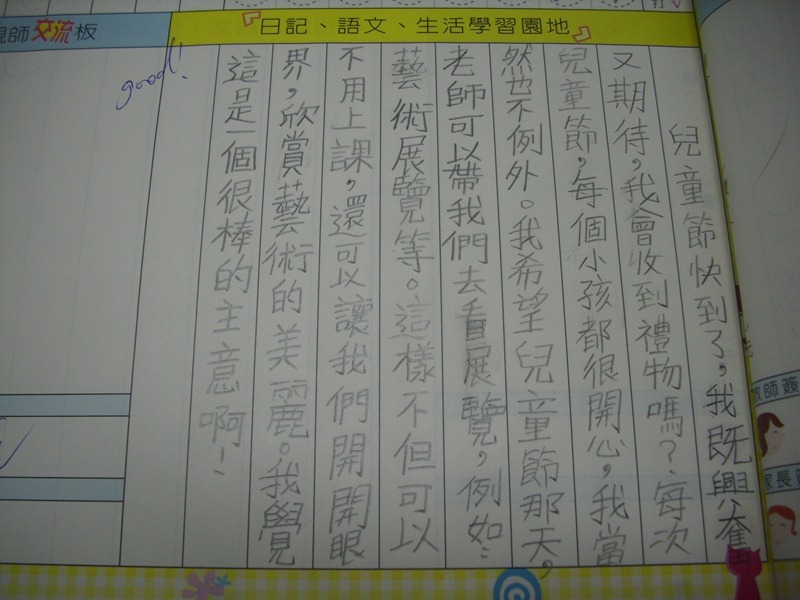 日記、語文、生活學習園地
親師交流板
兒童節快到了，我既興奮
又期待，我會收到禮物嗎？每次
兒童節，每個小孩都很開心，我當
然也不例外。我希望兒童節那天，
老師可以帶我們去看展覽，例如：
藝術展覽等。這樣不但可以
不用上課，還可以讓我們開開眼
界，欣賞藝術的美麗。我覺
這是一個很棒的主意啊！
good!
師簽
家長簽